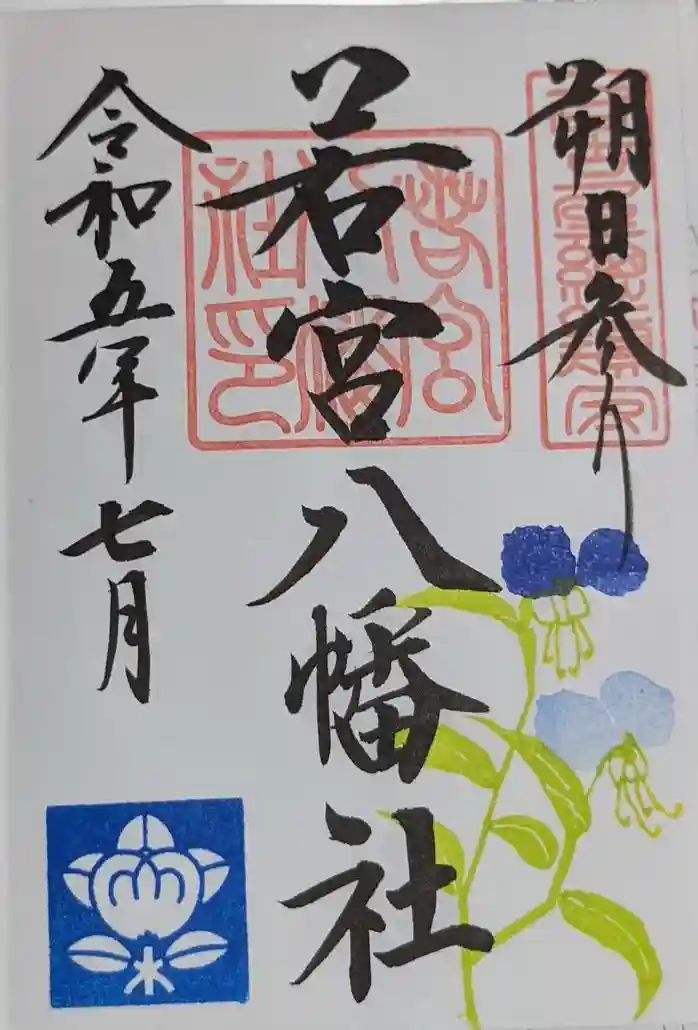 朔日参り
若宮八幡社
若宮八幡社印
令和五年七月